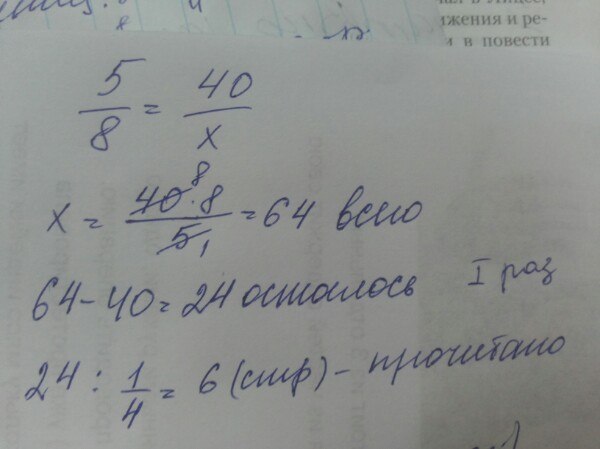 чал в Лицее,
ижения и ре-
и в повести
5/8 = 40/x
x = 40⁸·8/5₁ = 64 всего
64-40=24 осталось I раз
24 : 1/4 = 6 (стр) - прочитано